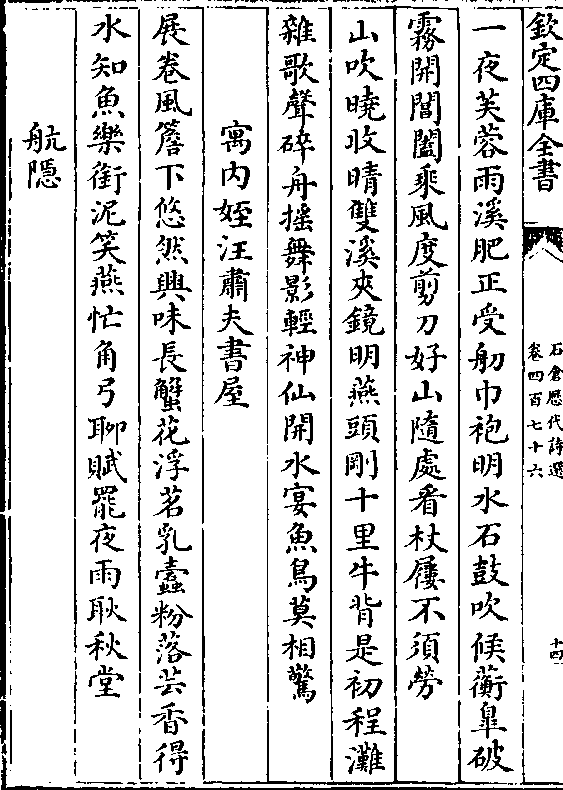 欽定四庫全書
石倉歷代詩選
卷四百七十六
十四
一夜芙蓉雨溪肥正受舠巾袍明水石鼓吹候蘅臯破
霧開閶闔乘風度剪刀好山隨處看杖屨不須勞
山吹曉收晴雙溪夾鏡明燕頭剛十里牛背是初程灘
雜歌聲碎舟搖舞影輕神仙開水宴魚鳥莫相驚
寓内姪汪肅夫書屋
展卷風簷下悠然興味長蟹花浮茗乳蠧粉落芸香得
水知魚樂銜泥笑燕忙角弓聊賦罷夜雨耿秋堂
航隱